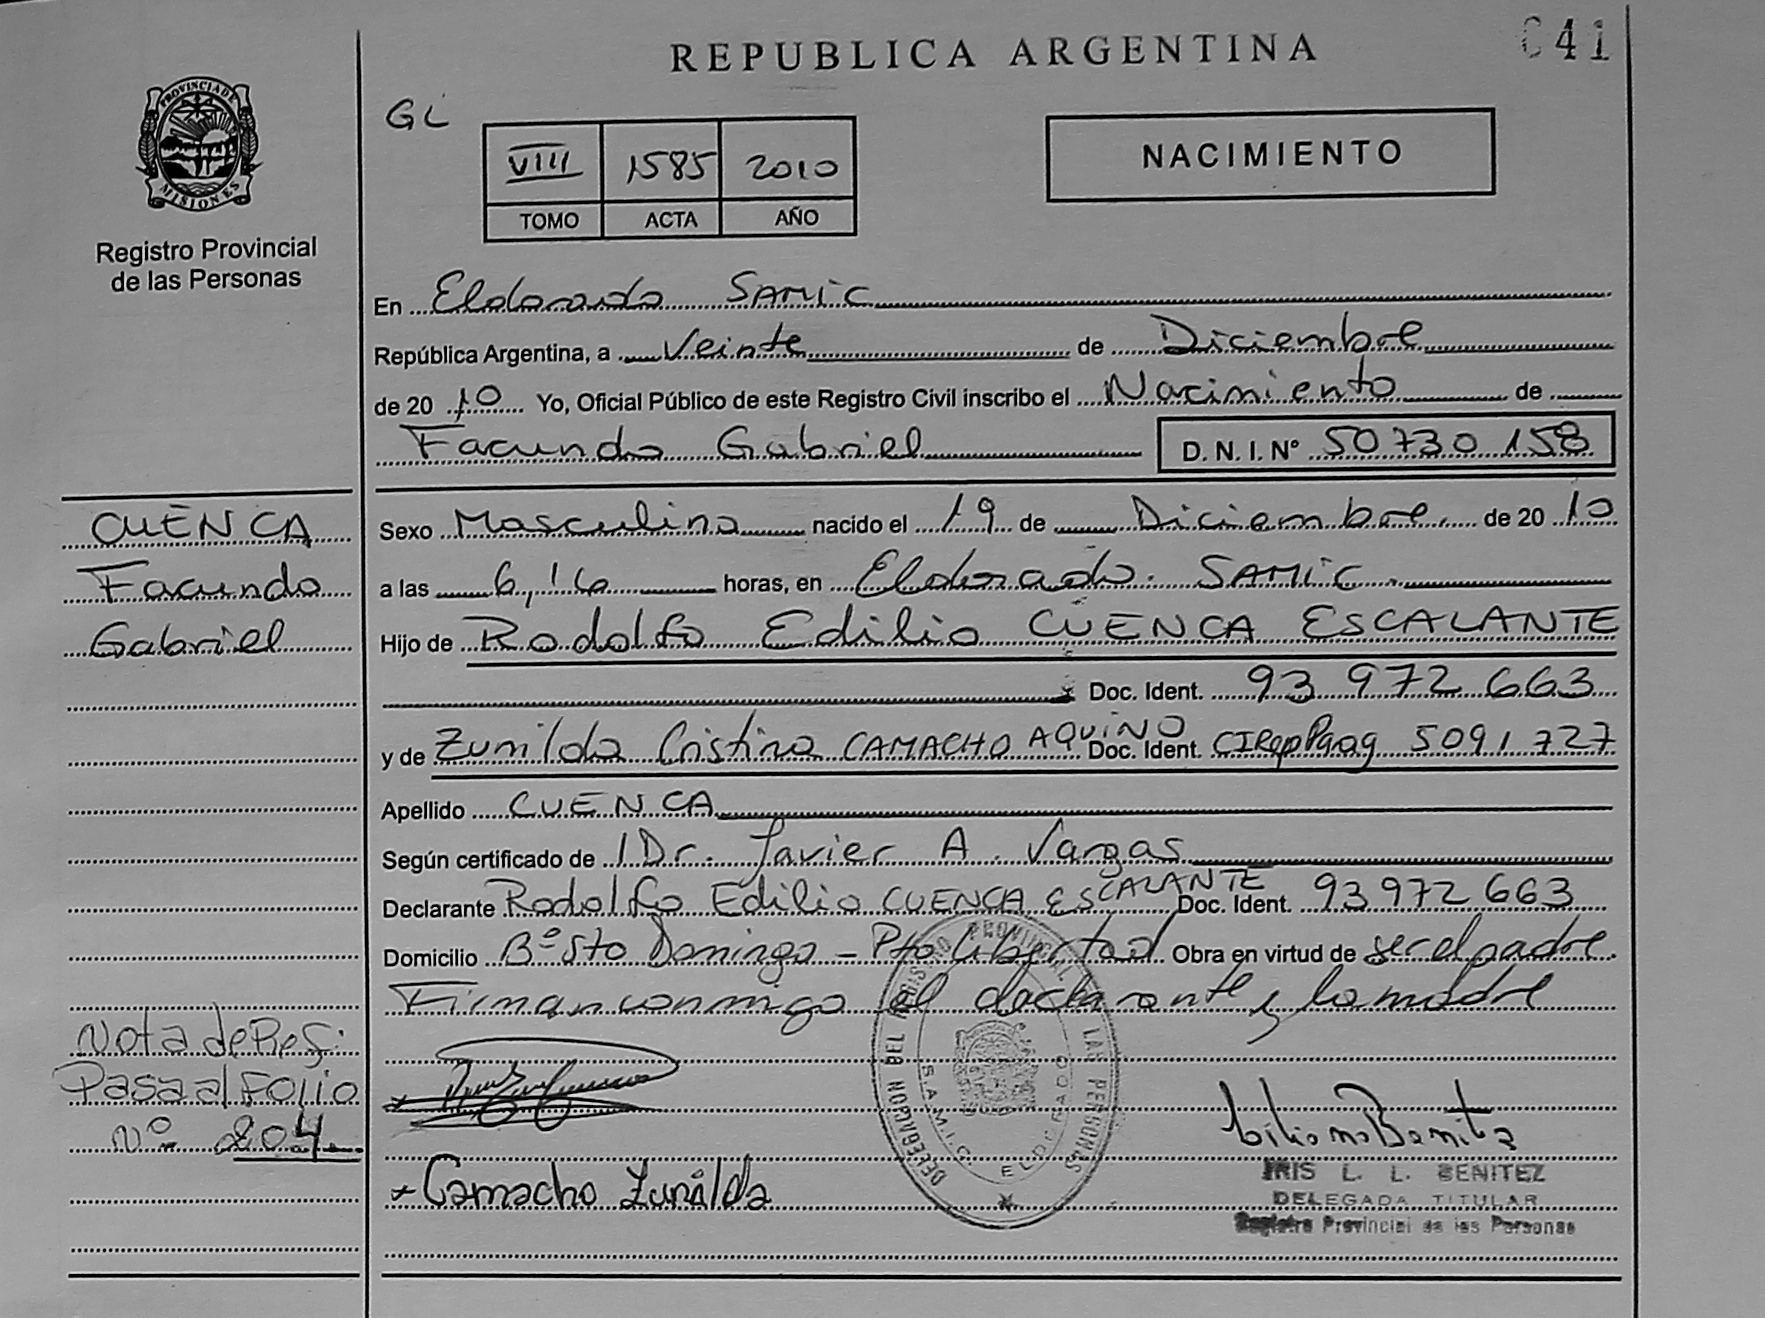 REPUBLICA ARGENTINA
041
PROVINCIA DE
MISIONES
Registro Provincial
de las Personas
GL
VIII 1585 2010
TOMO ACTA AÑO
NACIMIENTO
En Eldorado SAMIC
República Argentina, a Veinte de Diciembre
de 2010 Yo, Oficial Público de este Registro Civil inscribo el Nacimiento de
Facundo Gabriel D.N.I. Nº 50 730 158
CUENCA
Facundo
Gabriel
Sexo Masculino nacido el 19 de Diciembre de 2010
a las 6,16 horas, en Eldorado. SAMIC.
Hijo de Rodolfo Edilio CUENCA ESCALANTE
Doc. Ident. 93 972 663
y de Zunilda Cristina CAMACHO AQUINO Doc. Ident. CIRepParag 5091727
Apellido CUENCA
Según certificado de Dr. Javier A. Vargas
Declarante Rodolfo Edilio CUENCA ESCALANTE Doc. Ident. 93972663
Domicilio Bº Sto Domingo - Pto Libertad Obra en virtud de ser el padre.
Firman conmigo el declarante y la madre
Nota de Ref:
Pasa al Folio
Nº 204
DELEGADO NOR DEL REGISTRO PROVINCIAL LAS PERSONAS
S.A.M.I.C. ELDORADO
Camacho Zunilda
IRIS L. L. BENITEZ
DELEGADA TITULAR
Registro Provincial de las Personas